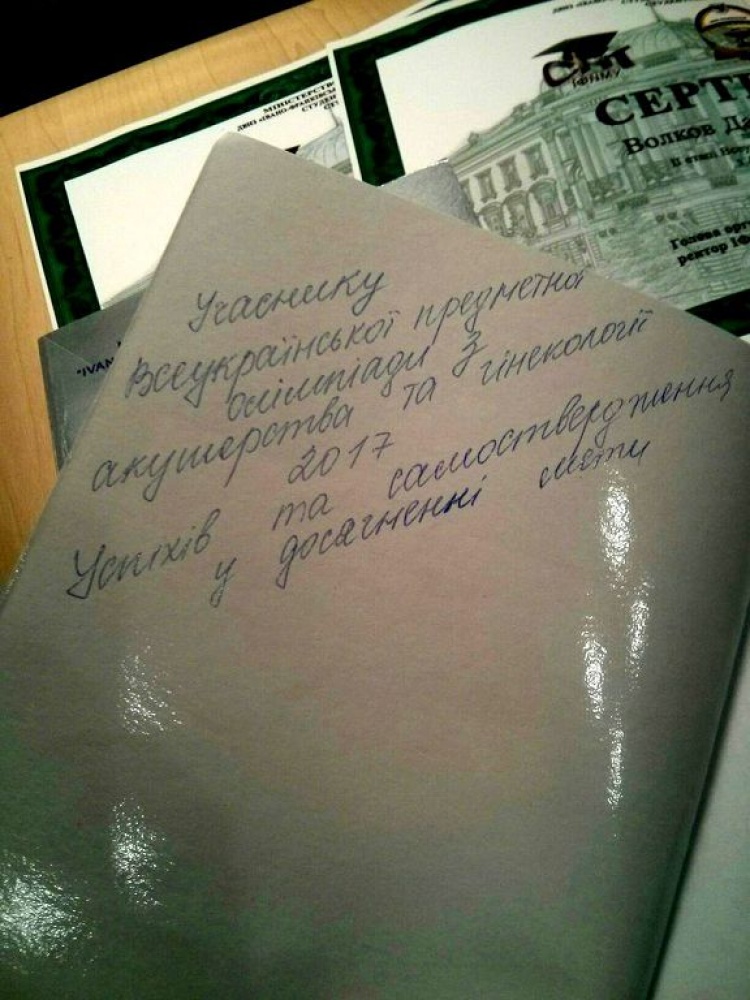 МІНІСТЕРСТВ
ДВНЗ «ІВАНО-ФРАНКІВСЬК
СТУДЕН
СНТ
ІФНМУ
СЕРТ
Волков Д
ІІ етап Всеук
Голова орг
ректор ІФ
"IVAN
Учаснику
Всеукраїнської предметної
олімпіади з
акушерства та гінекології
2017
Успіхів та самоствердження
у досягненні мети